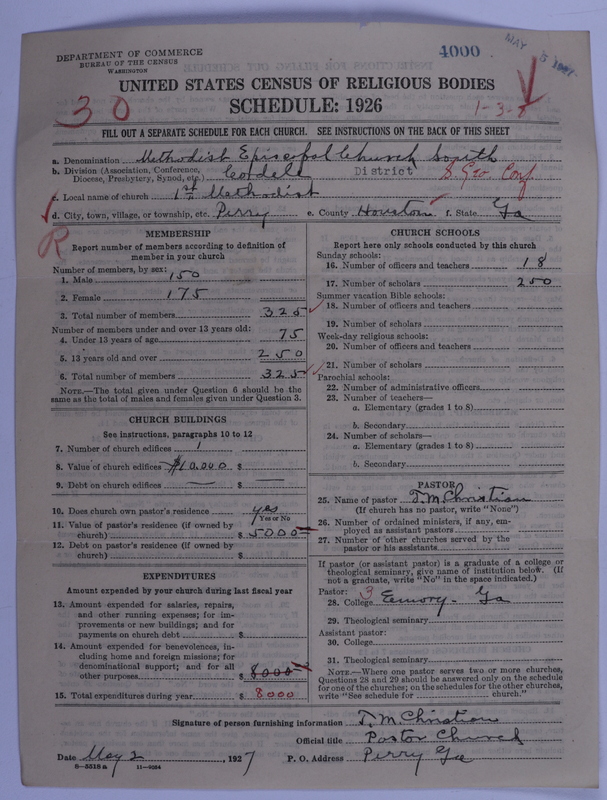 DEPARTMENT OF COMMERCE
BUREAU OF THE CENSUS
WASHINGTON
4000
MAY 5 1927
UNITED STATES CENSUS OF RELIGIOUS BODIES
SCHEDULE: 1926
30
1-3-8
FILL OUT A SEPARATE SCHEDULE FOR EACH CHURCH. SEE INSTRUCTIONS ON THE BACK OF THIS SHEET
a. Denomination Methodist Episcopal Church South
b. Division (Association, Conference, Diocese, Presbytery, Synod, etc.) Cordele District S. Geo. Conf
c. Local name of church 1st Methodist
d. City, town, village, or township, etc. Perry e. County Houston f. State Ga
R
MEMBERSHIP
Report number of members according to definition of
member in your church
Number of members, by sex:
1. Male 150
2. Female 175
3. Total number of members 325
Number of members under and over 13 years old:
4. Under 13 years of age 75
5. 13 years old and over 250
6. Total number of members 325
NOTE.—The total given under Question 6 should be the
same as the total of males and females given under Question 3.
CHURCH BUILDINGS
See instructions, paragraphs 10 to 12
7. Number of church edifices 1
8. Value of church edifices $10,000 $
9. Debt on church edifices — $ —
10. Does church own pastor's residence yes
Yes or No
11. Value of pastor's residence (if owned by
church) $ 5000
12. Debt on pastor's residence (if owned by
church) $
EXPENDITURES
Amount expended by your church during last fiscal year
13. Amount expended for salaries, repairs,
and other running expenses; for im-
provements or new buildings; and for
payments on church debt $
14. Amount expended for benevolences, in-
cluding home and foreign missions; for
denominational support; and for all
other purposes $ 8000
15. Total expenditures during year $ 8000
CHURCH SCHOOLS
Report here only schools conducted by this church
Sunday schools:
16. Number of officers and teachers 18
17. Number of scholars 250
Summer vacation Bible schools:
18. Number of officers and teachers
19. Number of scholars
Week-day religious schools:
20. Number of officers and teachers
21. Number of scholars
Parochial schools:
22. Number of administrative officers
23. Number of teachers—
a. Elementary (grades 1 to 8)
b. Secondary
24. Number of scholars—
a. Elementary (grades 1 to 8)
b. Secondary
PASTOR
25. Name of pastor T. M. Christian
(If church has no pastor, write "None")
26. Number of ordained ministers, if any, em-
ployed as assistant pastors
27. Number of other churches served by the
pastor or his assistants
If pastor (or assistant pastor) is a graduate of a college or
theological seminary, give name of institution below. (If
not a graduate, write "No" in the space indicated.)
Pastor: 3
28. College Emory - Ga
29. Theological seminary
Assistant pastor:
30. College
31. Theological seminary
NOTE.—Where one pastor serves two or more churches,
Questions 28 and 29 should be answered only on the schedule
for one of the churches; on the schedules for the other churches,
write "See schedule for church."
Signature of person furnishing information T. M Christian
Official title Pastor Church
Date May 2, 1927 P. O. Address Perry Ga
8-5318a 11-9024